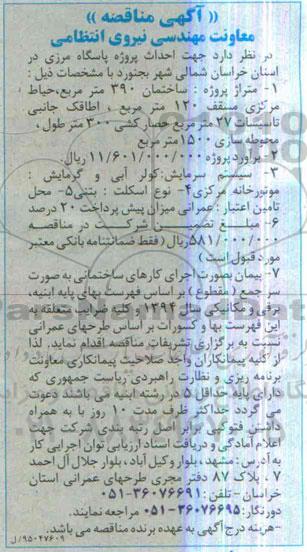 « آگهی مناقصه »
معاونت مهندسی نیروی انتظامی
در نظر دارد جهت احداث پروژه پاسگاه مرزی در
استان خراسان شمالی شهر بجنورد با مشخصات ذیل :
۱- متراژ پروژه : ساختمان ۳۹۰ متر مربع،حیاط
مرکزی مسقف ۱۲۰ متر مربع ، اطاقک جانبی
تاسیسات ۲۷ متر مربع حصار کشی ۳۰۰ متر طول ،
محوطه سازی ۱۵۰۰ متر مربع
۲- برآورد پروژه ۱۱/۶۰۱/۰۰۰/۰۰۰ ریال.
۳- سیستم سرمایش:کولر آبی و گرمایش :
موتورخانه مرکزی ۴- نوع اسکلت : بتنی ۵- محل
تامین اعتبار : عمرانی میزان پیش پرداخت ۲۰ درصد
۶- مبلغ تضمین شرکت در مناقصه
۵۸۱/۰۰۰/۰۰۰ریال ( فقط ضمانتنامه بانکی معتبر
مورد قبول است )
۷- پیمان بصورت اجرای کارهای ساختمانی به صورت
سر جمع ( مقطوع ) بر اساس فهرست بهای پایه ابنیه،
برقی و مکانیکی سال ۱۳۹۴ و کلیه ضرایب متعلقه به
این فهرست بها و کسورات بر اساس طرحهای عمرانی
نسبت به برگزاری تشریفات مناقصه اقدام نماید. لذا
از کلیه پیمانکاران واجد صلاحیت پیمانکاری معاونت
برنامه ریزی و نظارت راهبردی ریاست جمهوری که
دارای پایه حداقل ۵ در رشته ابنیه می باشند دعوت
می گردد حداکثر ظرف مدت ۱۰ روز با به همراه
داشتن فتوکپی برابر اصل رتبه بندی شرکت جهت
اعلام آمادگی و دریافت اسناد ارزیابی توان اجرایی کار
به آدرس : مشهد، بلوار وکیل آباد ، بلوار جلال آل احمد
۷ ، پلاک ۸۷ دفتر مجری طرحهای عمرانی استان
خراسان - تلفن : ۳۶۰۷۶۶۹۱-۰۵۱
دورنگار: ۳۶۰۷۶۶۹۵-۰۵۱ مراجعه نمایند.
-هزینه درج آگهی به عهده برنده مناقصه می باشد.
۹۵۰۴۷۶۰۹/ل